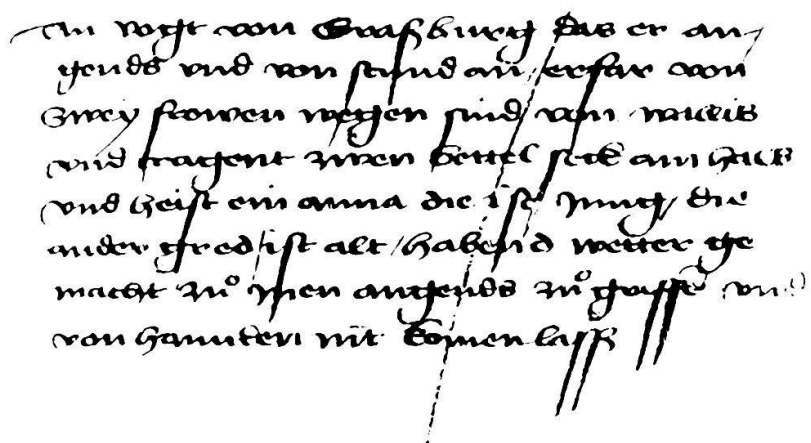 An vogt von Grasburg das er an
gends vnd von stund an erfar von
zwey frowen wegen sind vom wallis
vnd tragent zwen bettel seck am hals
vnd heist ein anna die ist Jung / die
ander gred ist alt / habend wetter ge
macht zuͦ Jnen angends zuͦ griffe vnd
von hannden nit komen lass